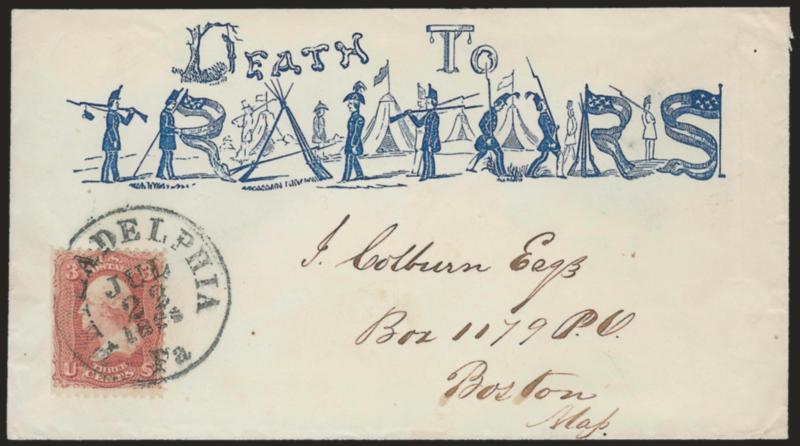 DEATH TO
TRAITORS
PHILADELPHIA
Pa
JUN
2
186
3
U.S. POSTAGE
THREE
U CENTS S
J. Colburn Esqß
Box 1179 P.O.
Boston
Maſs.